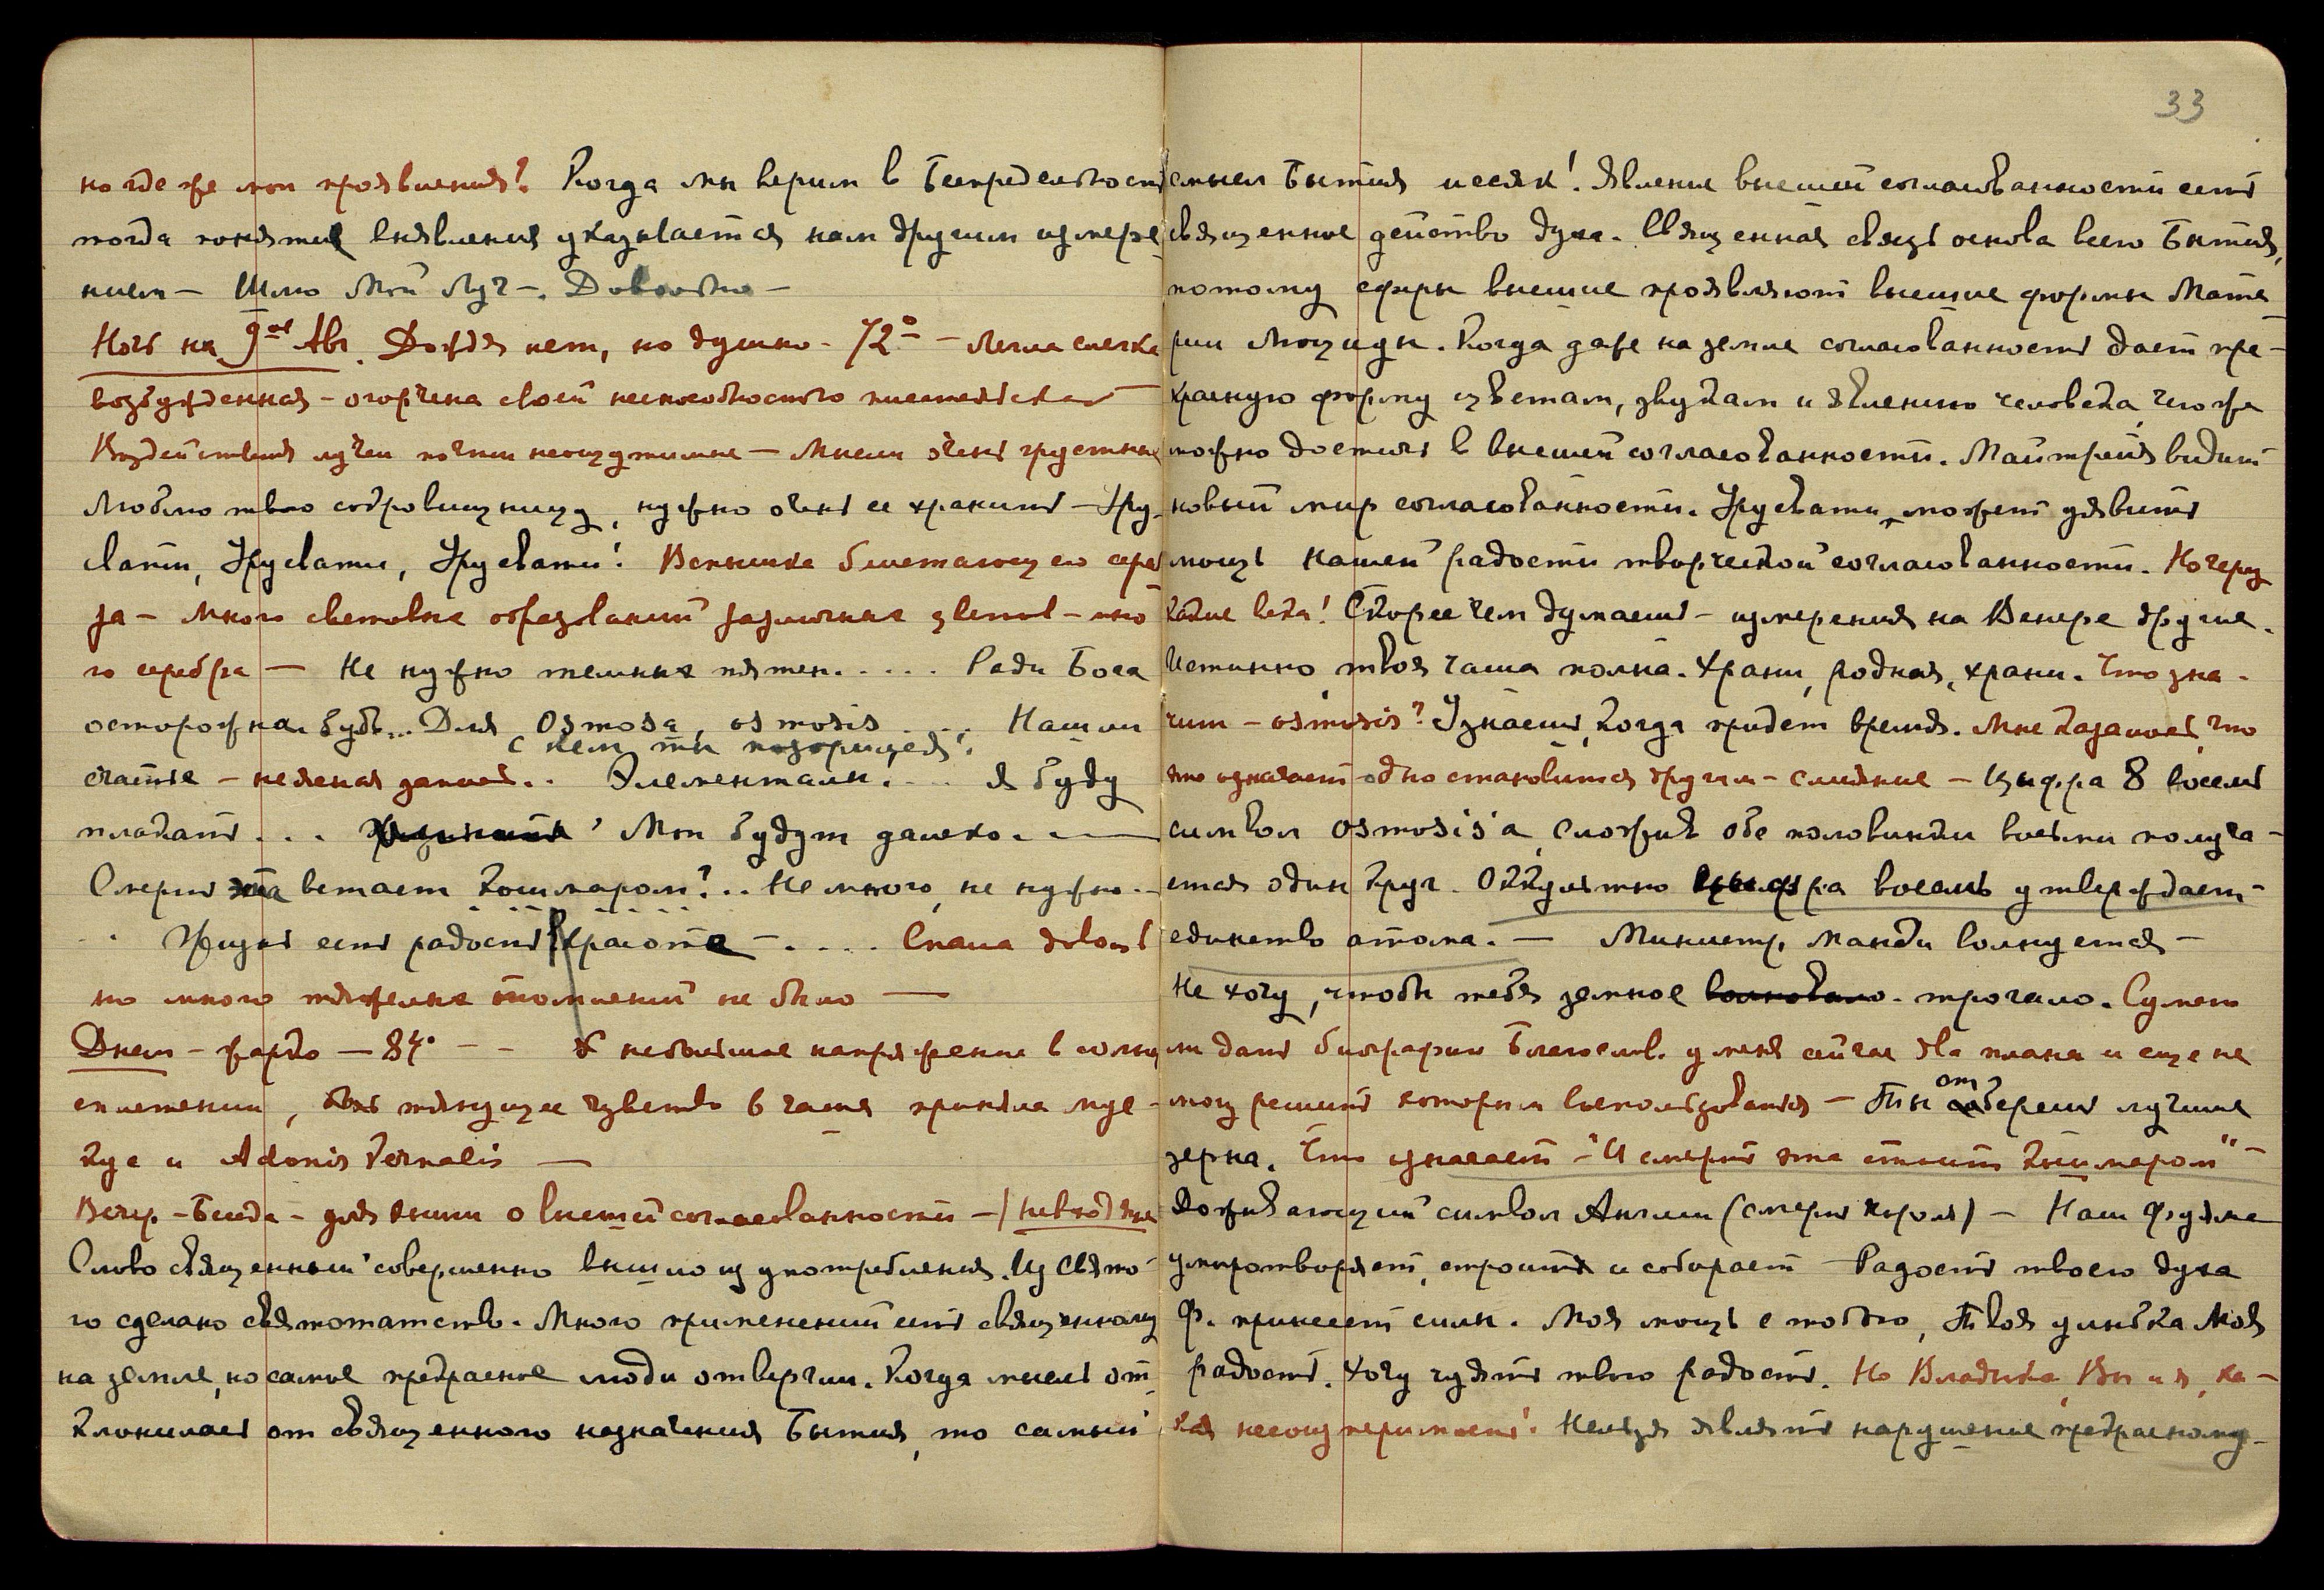 но где же мои проявления? Когда мы верим в Беспредельность
тогда понятие выявления указывается нам другим измере-
нием — Шлю Мой Луч —. Довольно —
Ночь на 9ое Авг. Дождя нет, но душно - 72° — легла слегка
возбужденная — огорчена своей неспособностью
Воздействия лучей почти неощутимые — Мысли очень грустные
Люблю твою сокровищницу, нужно очень ее хранить — Уру-
свати, Урусвати, Урусвати! Вспышка блистающего сереб
ра — Много световых образований различных цветов — мно
го серебра — Не нужно темных пятен..... Ради Бога
осторожна будь... Для Osmosa, osmosis .... Нашли
с кем ты
счастье — неясная запись.. Элементалы.... я буду
плакать... Мои будут далеко. —
Смерть эта витает кошмаром?.. Не много, не нужно..
.. Жизнь есть радость красоте —.... Спала довольно
но много тяжелых томлений не было —
Днем — жарко — 84° — — небывшее напряжение в солнц
сплетении, тянущее чувство в чаше приняла мус-
кус и Adonis Vernalis —
Вечер — Беседа — для книги о высшей согласованности —
Слово священный совершенно вышло из употребления. Из Свято-
го сделано святотатство. Много применений есть священному
на земле, но самое прекрасное люди отвергли. Когда мысль от-
клонилась от священного назначения Бытия, то самый
33
смысл Бытия иссяк! Явление высшей согласованности есть
священное действо духа. Священная связь основа всего Бытия,
потому сферы высшие проявляют высшие формы Мате-
рии Люциды. Когда даже на земле согласованность дает пре-
красную форму цветам, звукам и явлению человека, чего же
можно достичь в высшей согласованности. Майтрейя видит
новый мир согласованности. Урусвати может явить
мощь нашей радости творческой согласованности. Но через
какие века! Скорее чем думаешь — измерения на Венере другие.
Истинно, твоя чаша полна. Храни, родная, храни. Что зна-
чит — osmosis? Узнаешь, когда придет время. Мне казалось, что
это означает одно становится другим — слияние — Цыфра 8 восемь
символ osmosis'a, сложив обе половинки восьми получа-
ется один круг. Оккультно цыфра восемь утверждает
единство атома. — Министр Манди волнуется —
Не хочу, чтобы тебя земное волновало. трогало. Сумею
ли дать биографии Благослов. у меня сейчас два плана и еще не
могу решить которым воспользоваться — Ты отберешь лучшие
зерна. Что означает — "И смерть эта кошмаром" —
Доживающий символ Англии (смерть короля) — Наш Фуяма
умиротворяет, строит и собирает — Радость твоего духа
Ф. принесет силы. Моя мощь с тобою, Твоя улыбка Моя
радость. Хочу чуять твою радость. Но Владыка, Вы и я, ка-
кая несоизмеримость! Нельзя являть нарушение прекрасному